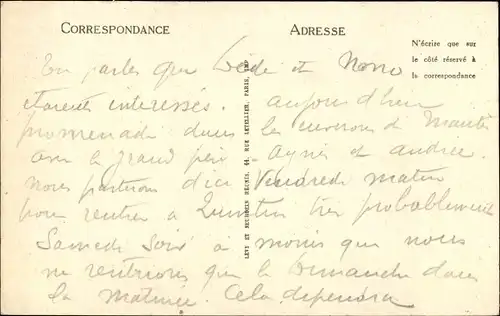 CORRESPONDANCE
ADRESSE
N'écrire que sur
le côté réservé à
la correspondance
LEVY ET NEURDEIN RÉUNIS, 44, RUE LETELLIER, PARIS, IMP
que Dédé et Nono
étaient intéressés. aujourd'hui
promenade dans les environs de
avec le grand père et andrée
Nous partirons d'ici Vendredi matin
pour rentrer à Quintin très probablement
Samedi soir à moins que nous
ne rentrions que le Dimanche dans
la matinée. Cela dépendra